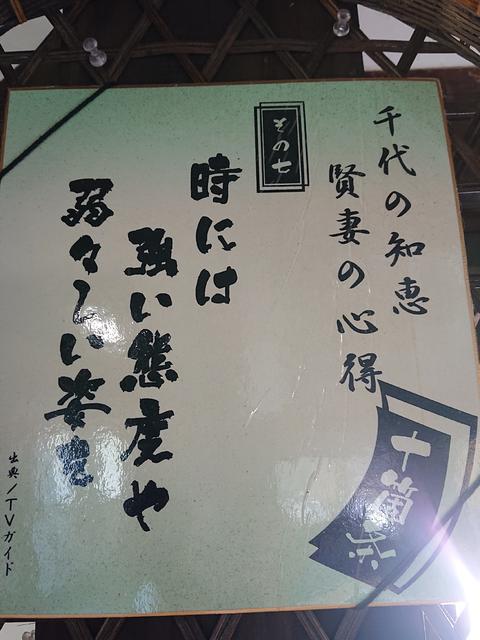 千代の知恵
賢妻の心得
十箇条
その七
時には
強い態度や
弱々しい姿も
出典／TVガイド